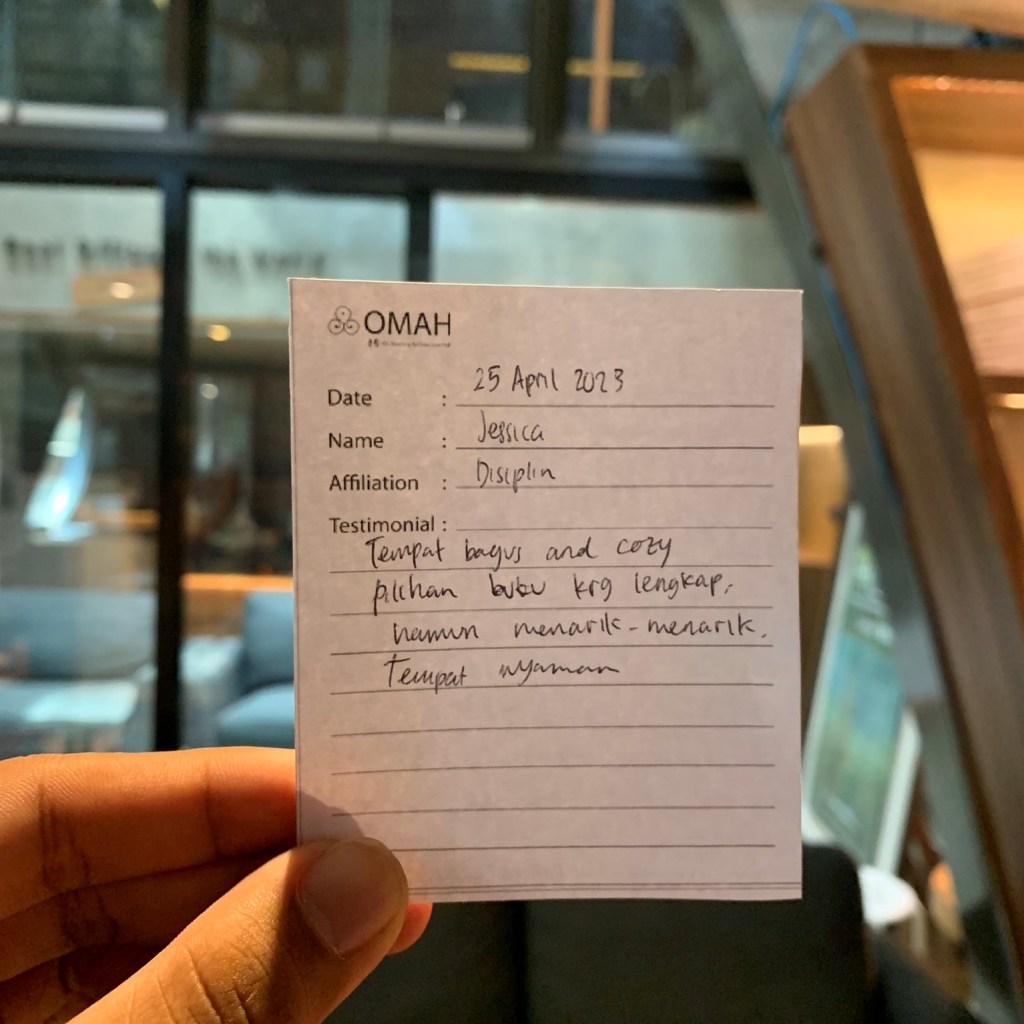 OMAH
Date : 25 April 2023
Name : Jessica
Affiliation : Disiplin
Testimonial :
Tempat bagus and cozy
pilihan buku krg lengkap,
namun menarik-menarik.
Tempat nyaman